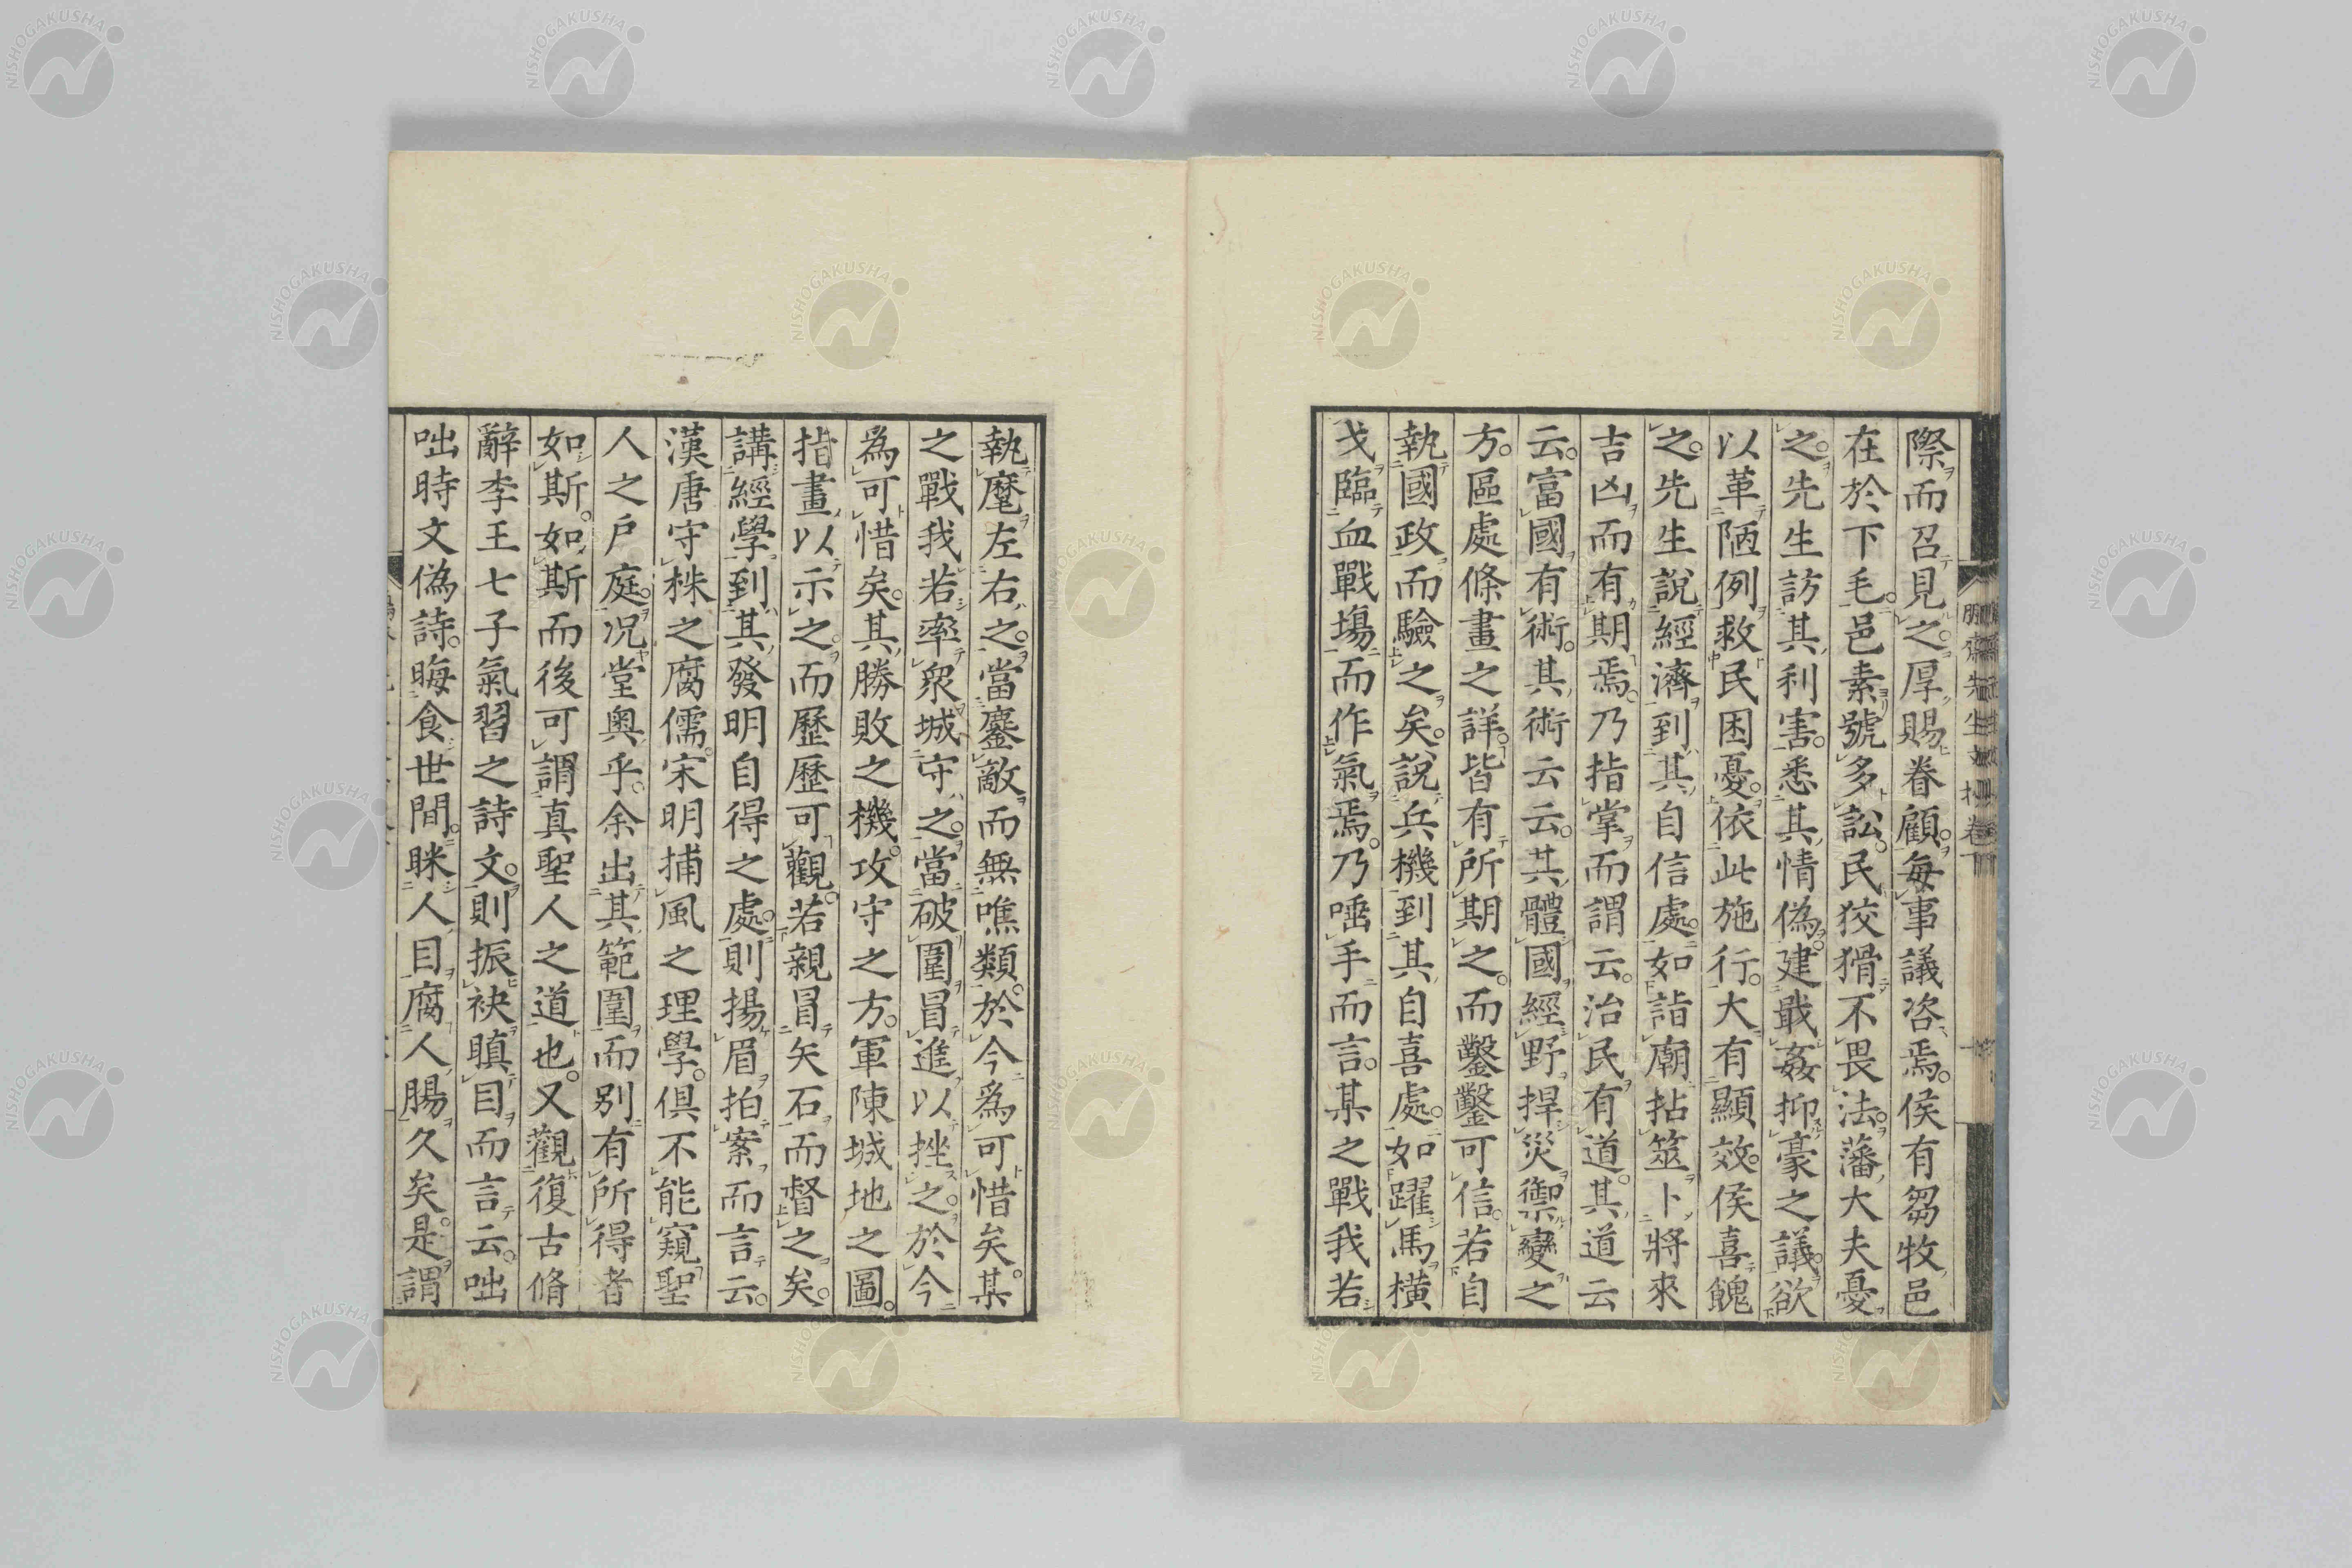 際而召見之。厚賜眷顧。每事議咨焉。侯有芻牧邑
在於下毛。邑素號多訟。民狡猾不畏法。藩大夫憂
之。先生訪其利害。悉其情偽。建戢姦抑豪之議。欲
以革陋例救民困憂。依此施行。大有顯效。侯喜餽
之。先生說經濟到其自信處。如詣廟拈筮卜將來
吉凶而有期焉。乃指掌而謂云。治民有道。其道云
云。富國有術。其術云云。其體國經野捍災禦變之
方。區處條畫之詳。皆有所期之。而鑿鑿可信。若自
執國政而驗之矣。說兵機到其自喜處。如躍馬橫
戈臨血戰場而作氣焉。乃唾手而言。某之戰我若
執麾左右之。當鏖敵而無噍類。於今為可惜矣。某
之戰我若率眾城守之。當破圍冒進以挫之。於今
為可惜矣。其勝敗之機。攻守之方。軍陳城地之圖。
指畫以示之。而歷歷可觀。若親冒矢石而督之矣。
講經學到其發明自得之處。則揚眉拍案而言云。
漢唐守株之腐儒。宋明捕風之理學。俱不能窺聖
人之戶庭。況堂奧乎。余出其範圍而別有所得者
如斯。如斯而後可謂真聖人之道也。又觀復古脩
辭李王七子氣習之詩文。則振袂瞋目而言云。咄
咄時文偽詩。晦食世間。眯人目腐人腸久矣。是謂